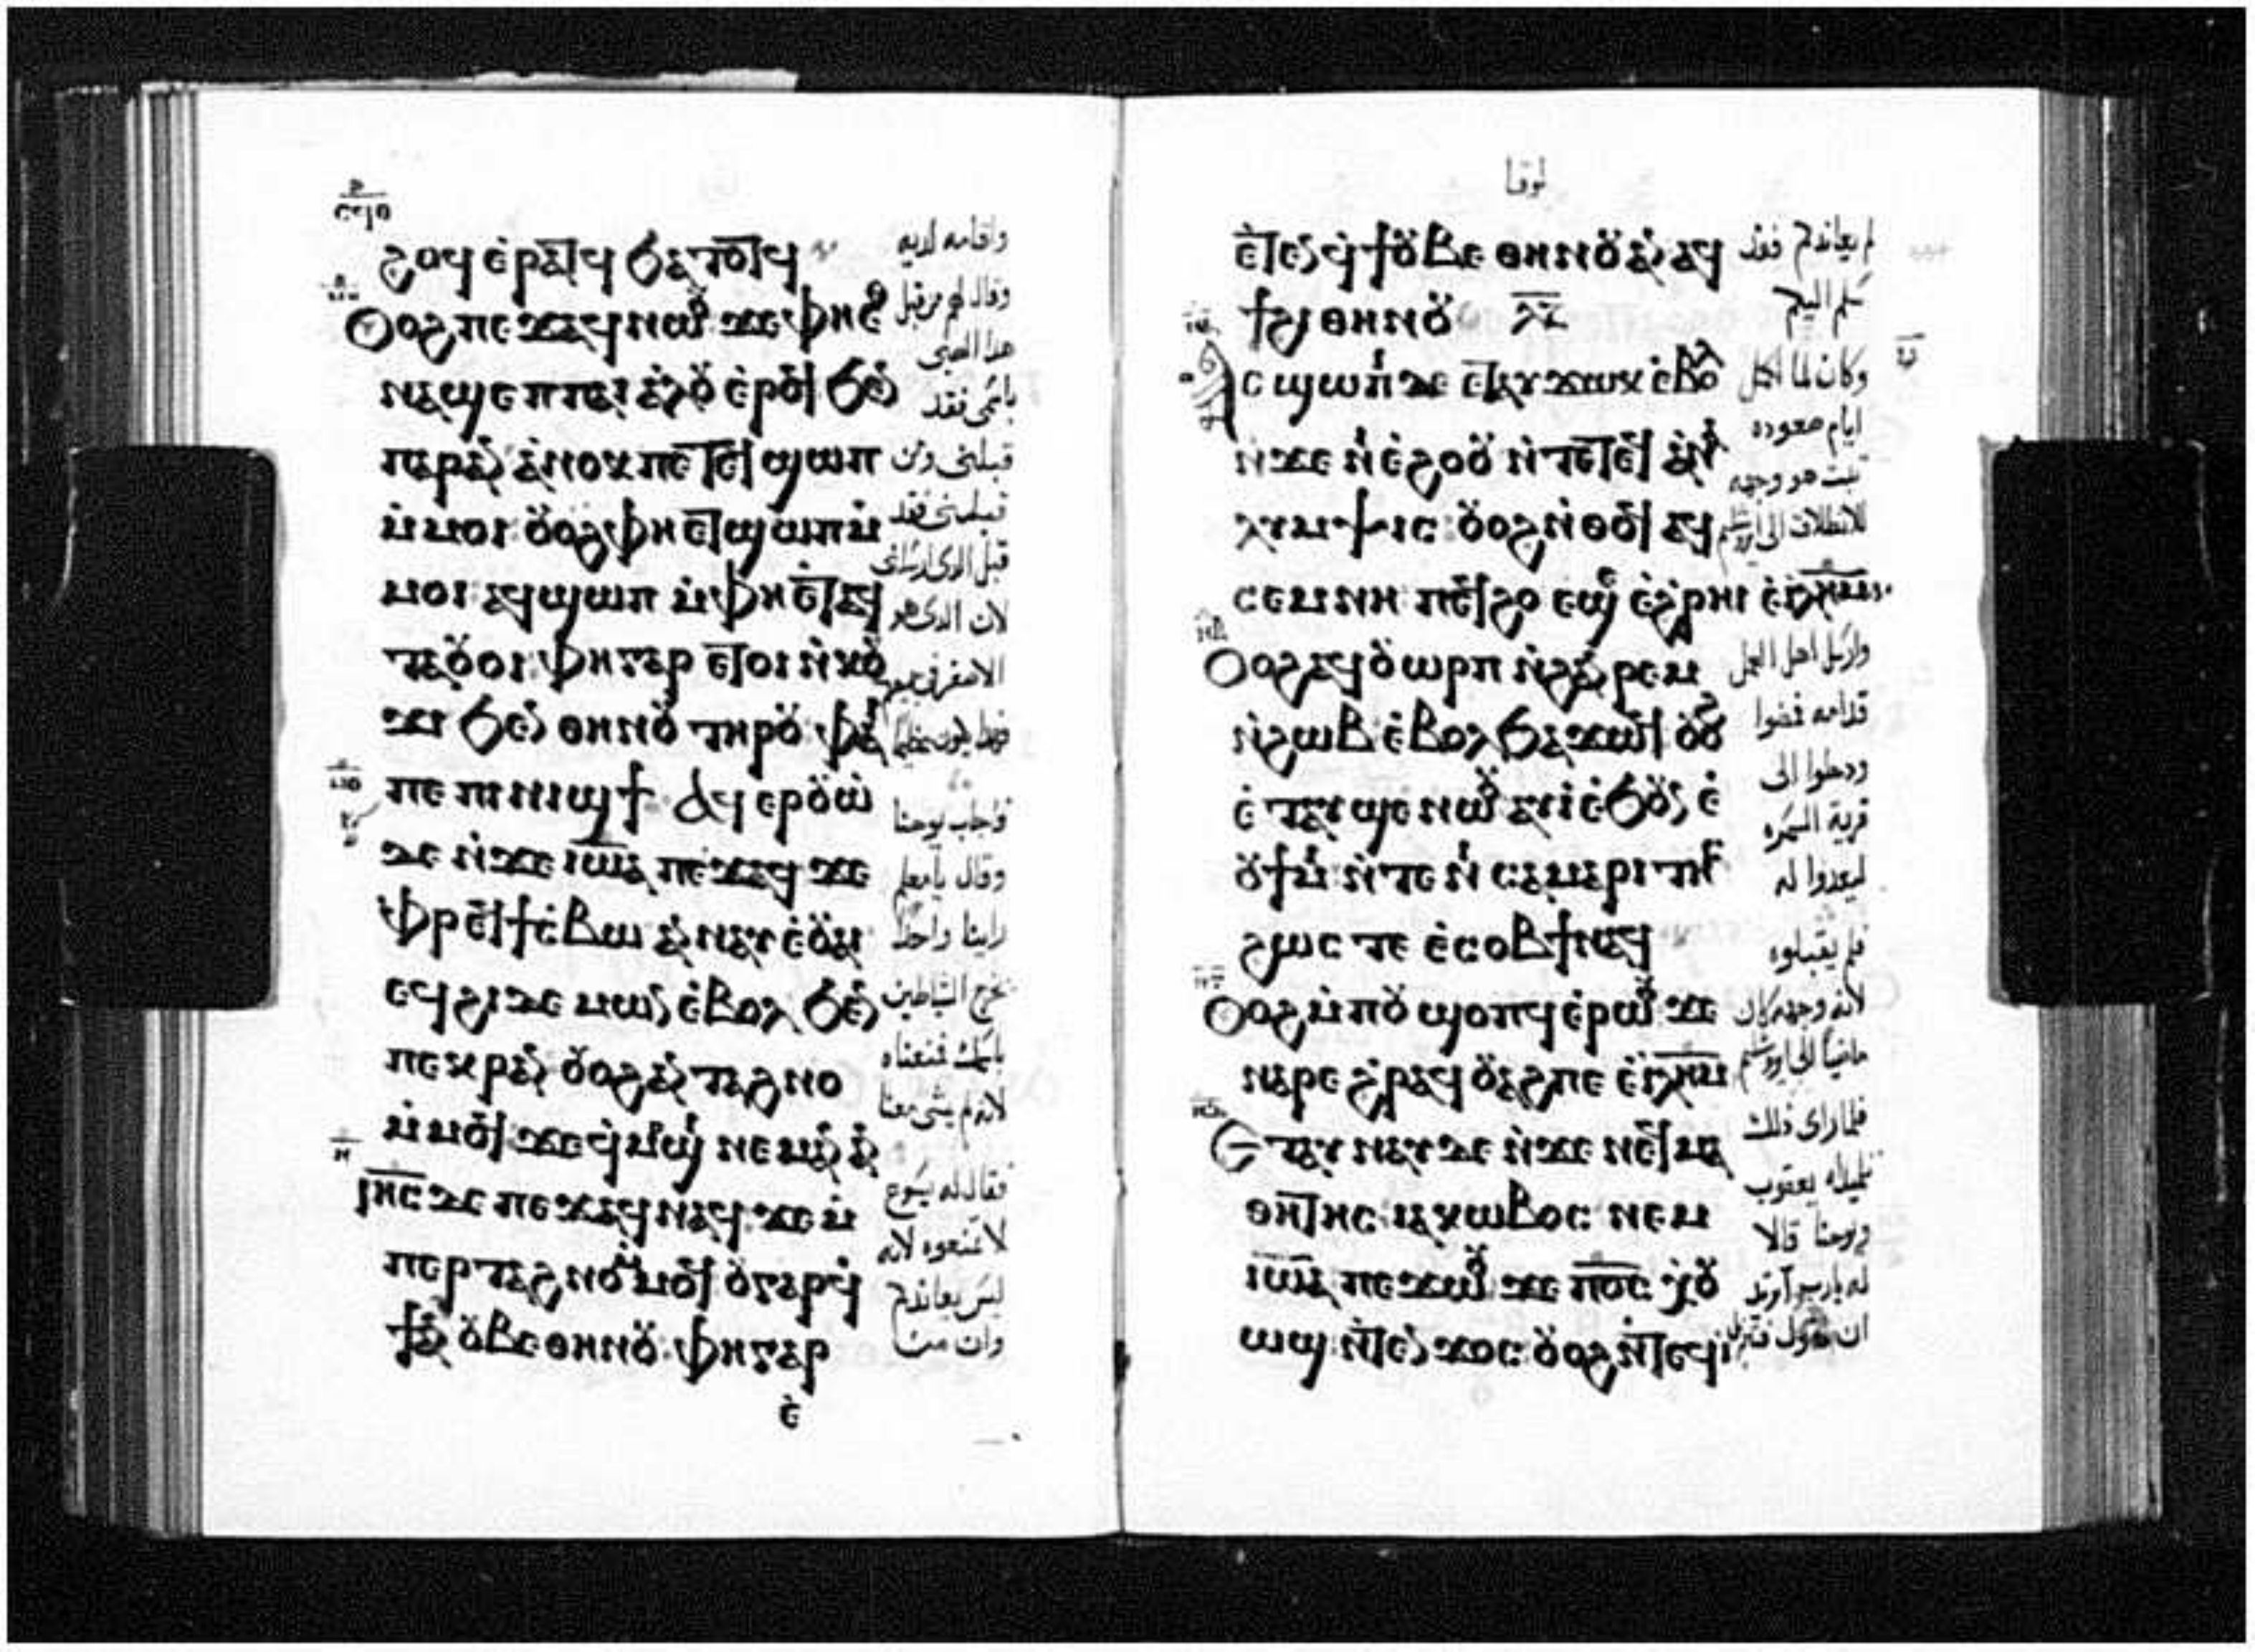 ⲥϥⲑ
ϩⲟϥ ⲉ̀ⲣⲁⲧϥ ϧⲁⲧⲟⲧϥ
Ⲟⲟϩ ⲡⲉϫⲁϥ ⲛⲱⲟⲩ ϫⲉ ⲫⲏⲉ
ⲛⲁϣⲉⲡ ⲡⲁⲓ ⲁ̀ⲗⲟⲩ ⲉ̀ⲣⲟϥ ϧⲉⲛ
ⲡⲁⲣⲁⲛ ⲁ̀ⲛⲟⲕ ⲡⲉⲧⲉϥϣⲱⲡ
ⲙ̀ⲙⲟⲓ ⲟⲩⲟϩ ⲫⲏ ⲉⲧϣⲱⲡ ⲙ̀
ⲙⲟⲓ ⲁϥϣⲱⲡ ⲙ̀ⲫⲏ ⲉ̀ⲧⲁϥ
ⲧⲁⲟⲩⲟⲓ ⲫⲏ ⲅⲁⲣ ⲉⲧⲟⲓ ⲛ̀ⲕⲟⲩ
ϫⲓ ϧⲉⲛ ⲑⲏⲛⲟⲩ ⲧⲏⲣⲟⲩ ⲫⲁⲓ
ⲡⲉ ⲡⲓⲛⲓϣϯ Ⲁϥⲉⲣⲟⲩⲱ̀
ⲇⲉ ⲛ̀ϫⲉ ⲓⲱⲁ ⲡⲉϫⲁϥ ϫⲉ
ⲫⲣⲉϥϯⲥⲃⲱ ⲁ̀ⲛⲛⲁⲩ ⲉ̀ⲟⲩⲁⲓ
ⲉϥϩⲓ ⲇⲉⲙⲱⲛ ⲉ̀ⲃⲟⲗ ϧⲉⲛ
ⲡⲉⲕⲣⲁⲛ ⲟⲩⲟϩ ⲁ̀ⲛⲧⲁϩⲛⲟ
ⲙ̀ⲙⲟϥ ϫⲉ ϥ̀ⲙⲟϣⲓ ⲛⲉⲙⲁⲛ ⲁⲛ
Ⲓⲏⲥ ⲇⲉ ⲡⲉϫⲁϥ ⲛⲁϥ ϫⲉ ⲙ̀
ⲡⲉⲣⲧⲁϩⲛⲟ ⲙ̀ⲙⲟϥ ⲟⲩ ⲅⲁⲣ ϥ̀
ϯ ⲁⲛ ⲟⲩⲃⲉ ⲑⲏⲛⲟⲩ ⲫⲏ ⲅⲁⲣ
ⲉ̀
واقامه لديه
وقال لهم من قبل
هذا الصبى
باسمى فقد
قبلنى ومن
قبلنى فقد
قبل الدى ارسلنى
لان الدى هو
الاصغر فى جميعكم
فهدا يكون عظيما
فاجاب يوحنا
وقال يا معلم
راينا واحدا
يخرج الشياطين
باسمك فمنعناه
لانه لم يمشى معنا
فقال له يسوع
لا تمنعوه لانه
ليس يعاندكم
وان من
لوقا
ⲉ̀ⲧⲉⲛϥ̀ϯ ⲟⲩⲃⲉ ⲑⲏⲛⲟⲩ ⲁⲛ ⲁϥ
ϯ ϩⲓ ⲑⲏⲛⲟⲩ
Ⲁⲥϣⲱⲡⲓ ⲇⲉ ⲉⲧⲁⲩϫⲱⲕ ⲉ̀ⲃⲟⲗ
ⲛ̀ϫⲉ ⲛⲓⲉ̀ϩⲟⲟⲩ ⲛ̀ⲧⲉ ⲧⲉϥⲁ̀ⲛⲁ
ⲗⲩⲙⲯⲓⲥ ⲟⲩⲟϩ ⲛ̀ⲑⲟϥ ⲁϥ
ⲥⲉⲙⲛⲏ ⲡⲉϥϩⲟ ⲉϣⲉ ⲉ̀ϩⲣⲏⲓ ⲉ̀ⲓⲗⲏⲙ
Ⲟⲟϩ ⲁϥⲟⲩⲱⲣⲡ ⲛ̀ϩⲁⲛⲣⲉⲙ
ⲛ̀ϩⲱⲃ ⲉ̀ⲃⲟⲗ ϧⲁϫⲱϥ ⲟⲩⲟϩ
ⲉ̀ⲧⲁⲩϣⲉ ⲛⲱⲟⲩ ⲁⲩⲓ̀ ⲉ̀ϧⲟⲩⲛ ⲉ̀
ⲟⲩϯⲙⲓ ⲛ̀ⲧⲉ ⲛⲓⲥⲁⲙⲁⲣⲓⲧⲏⲥ
ϩⲱⲥ ⲧⲉ ⲉ̀ⲥⲟⲃϯ ⲛⲁϥ
Ⲟⲟϩ ⲙ̀ⲡⲟⲩϣⲟⲡϥ ⲉ̀ⲣⲱⲟⲩ ϫⲉ
ⲛⲁⲣⲉ ϩⲣⲁϥ ⲟⲩⲁϩ ⲡⲉ ⲉ̀ⲓⲗⲏⲙ
Ⲉⲧⲁⲩⲛⲁⲩ ⲇⲉ ⲛ̀ϫⲉ ⲛⲉϥⲙⲁ
ⲑⲏⲧⲏⲥ ⲓⲁⲕⲱⲃⲟⲥ ⲛⲉⲙ
ⲓⲱⲁ ⲡⲉϫⲱⲟⲩ ϫⲉ ⲡⲟⲥ ⲭⲟⲩ
ⲱϣ ⲛ̀ⲧⲉⲛϫⲟⲥ ⲟⲩⲟϩ ⲛ̀ⲧⲉϥⲓ̀
لم يعاندكم فقد
سلم اليكم
وكان لما اكمل
ايام صعوده
ثبت هو وجهه
للانطلاق الى
وارسل اهل العمل
قدامه فمضوا
ودخلوا الى
قرية السمره
ليعدوا له
فلم يقبلوه
لان وجهه كان
ماضيا الى اورشليم
فلما راى ذلك
تلميذاه يعقوب
ويوحنا قالا
له يارب اتريد
ان نقول فتنزل